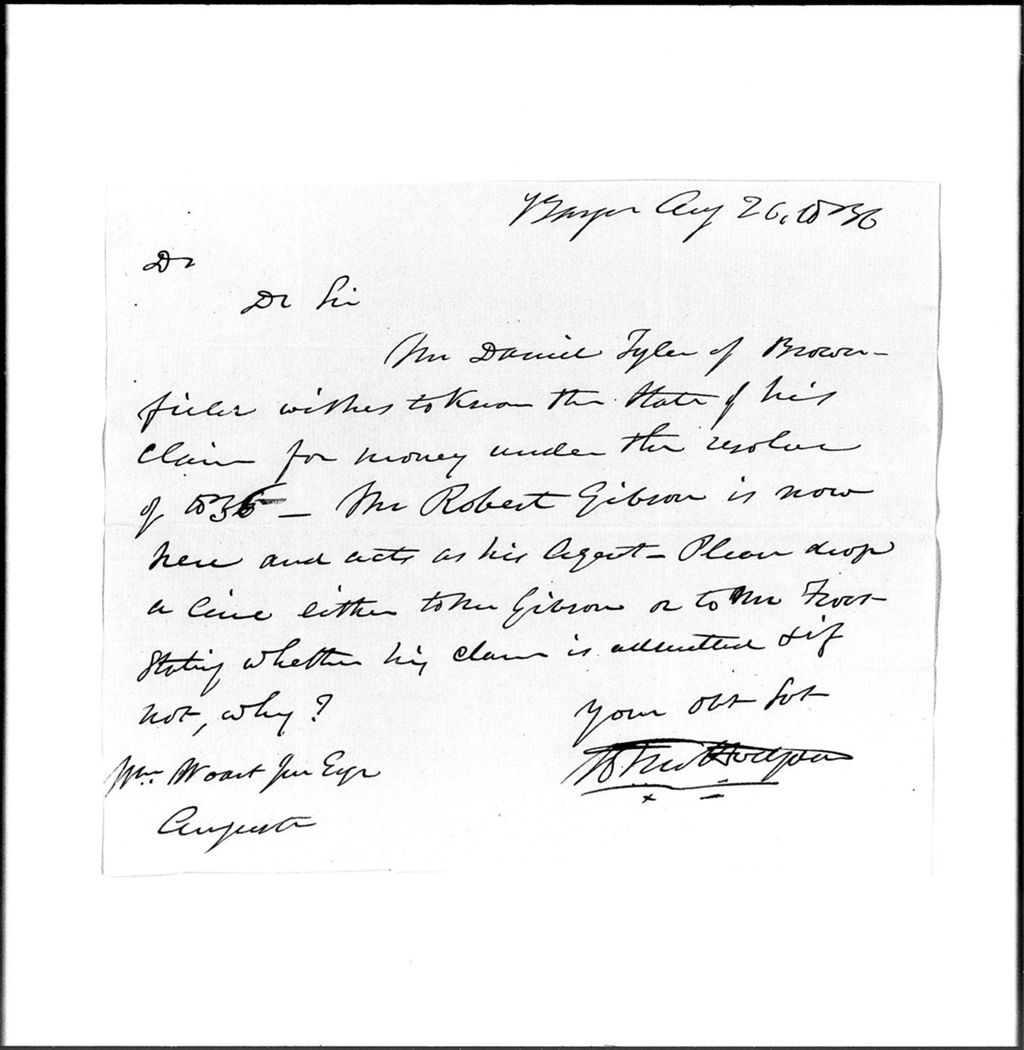 Bangor Aug 26, 1836
Dr
Dr Sir
Mr Daniel Tyler of Brown-
field wishes to know the state of his
claim for money under the resolve
of 1836 — Mr Robert Gibson is now
here and acts as his Agent — Please drop
a line either to Mr Gibson or to Mr Frost
stating whether his claim is admitted & if
not, why?
Your Obt Svt
Hodgdon
Wm Woart Jnr Esqr
Augusta